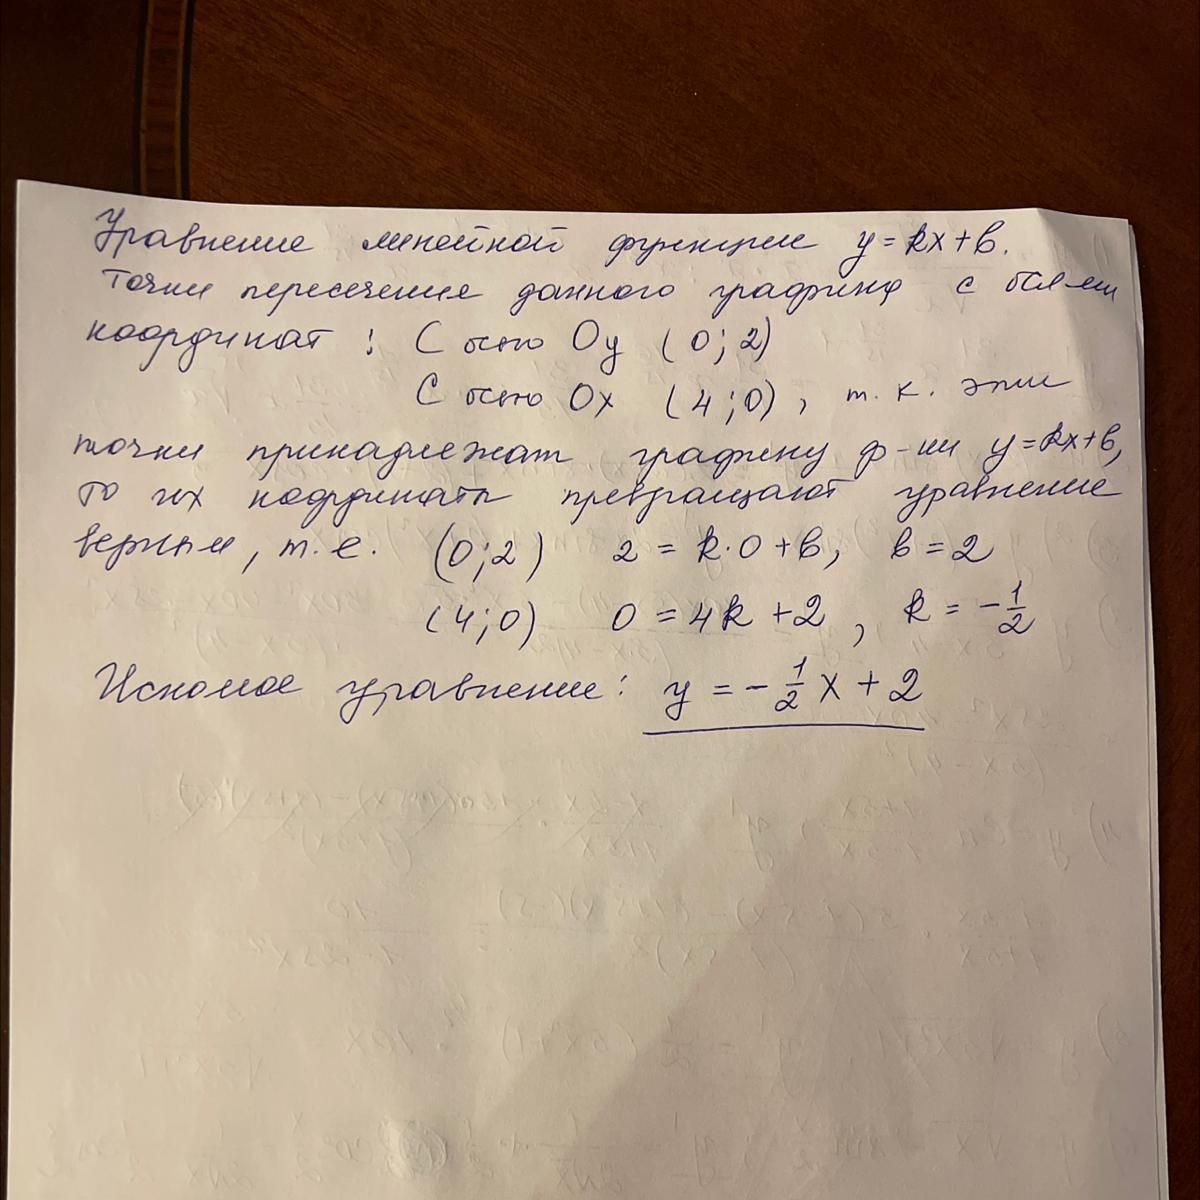 Уравнение линейной функции y = kx + b.
Точки пересечения данного графика с осями
координат : С осью Oy (0; 2)
С осью Ox (4; 0), т. к. эти
точки принадлежат графику ф-ии y = kx + b,
то их координаты превращают уравнение
верным, т. е. (0; 2) 2 = k·0 + b, b = 2
(4; 0) 0 = 4k + 2 , k = -1/2
Искомое уравнение: y = -1/2 x + 2